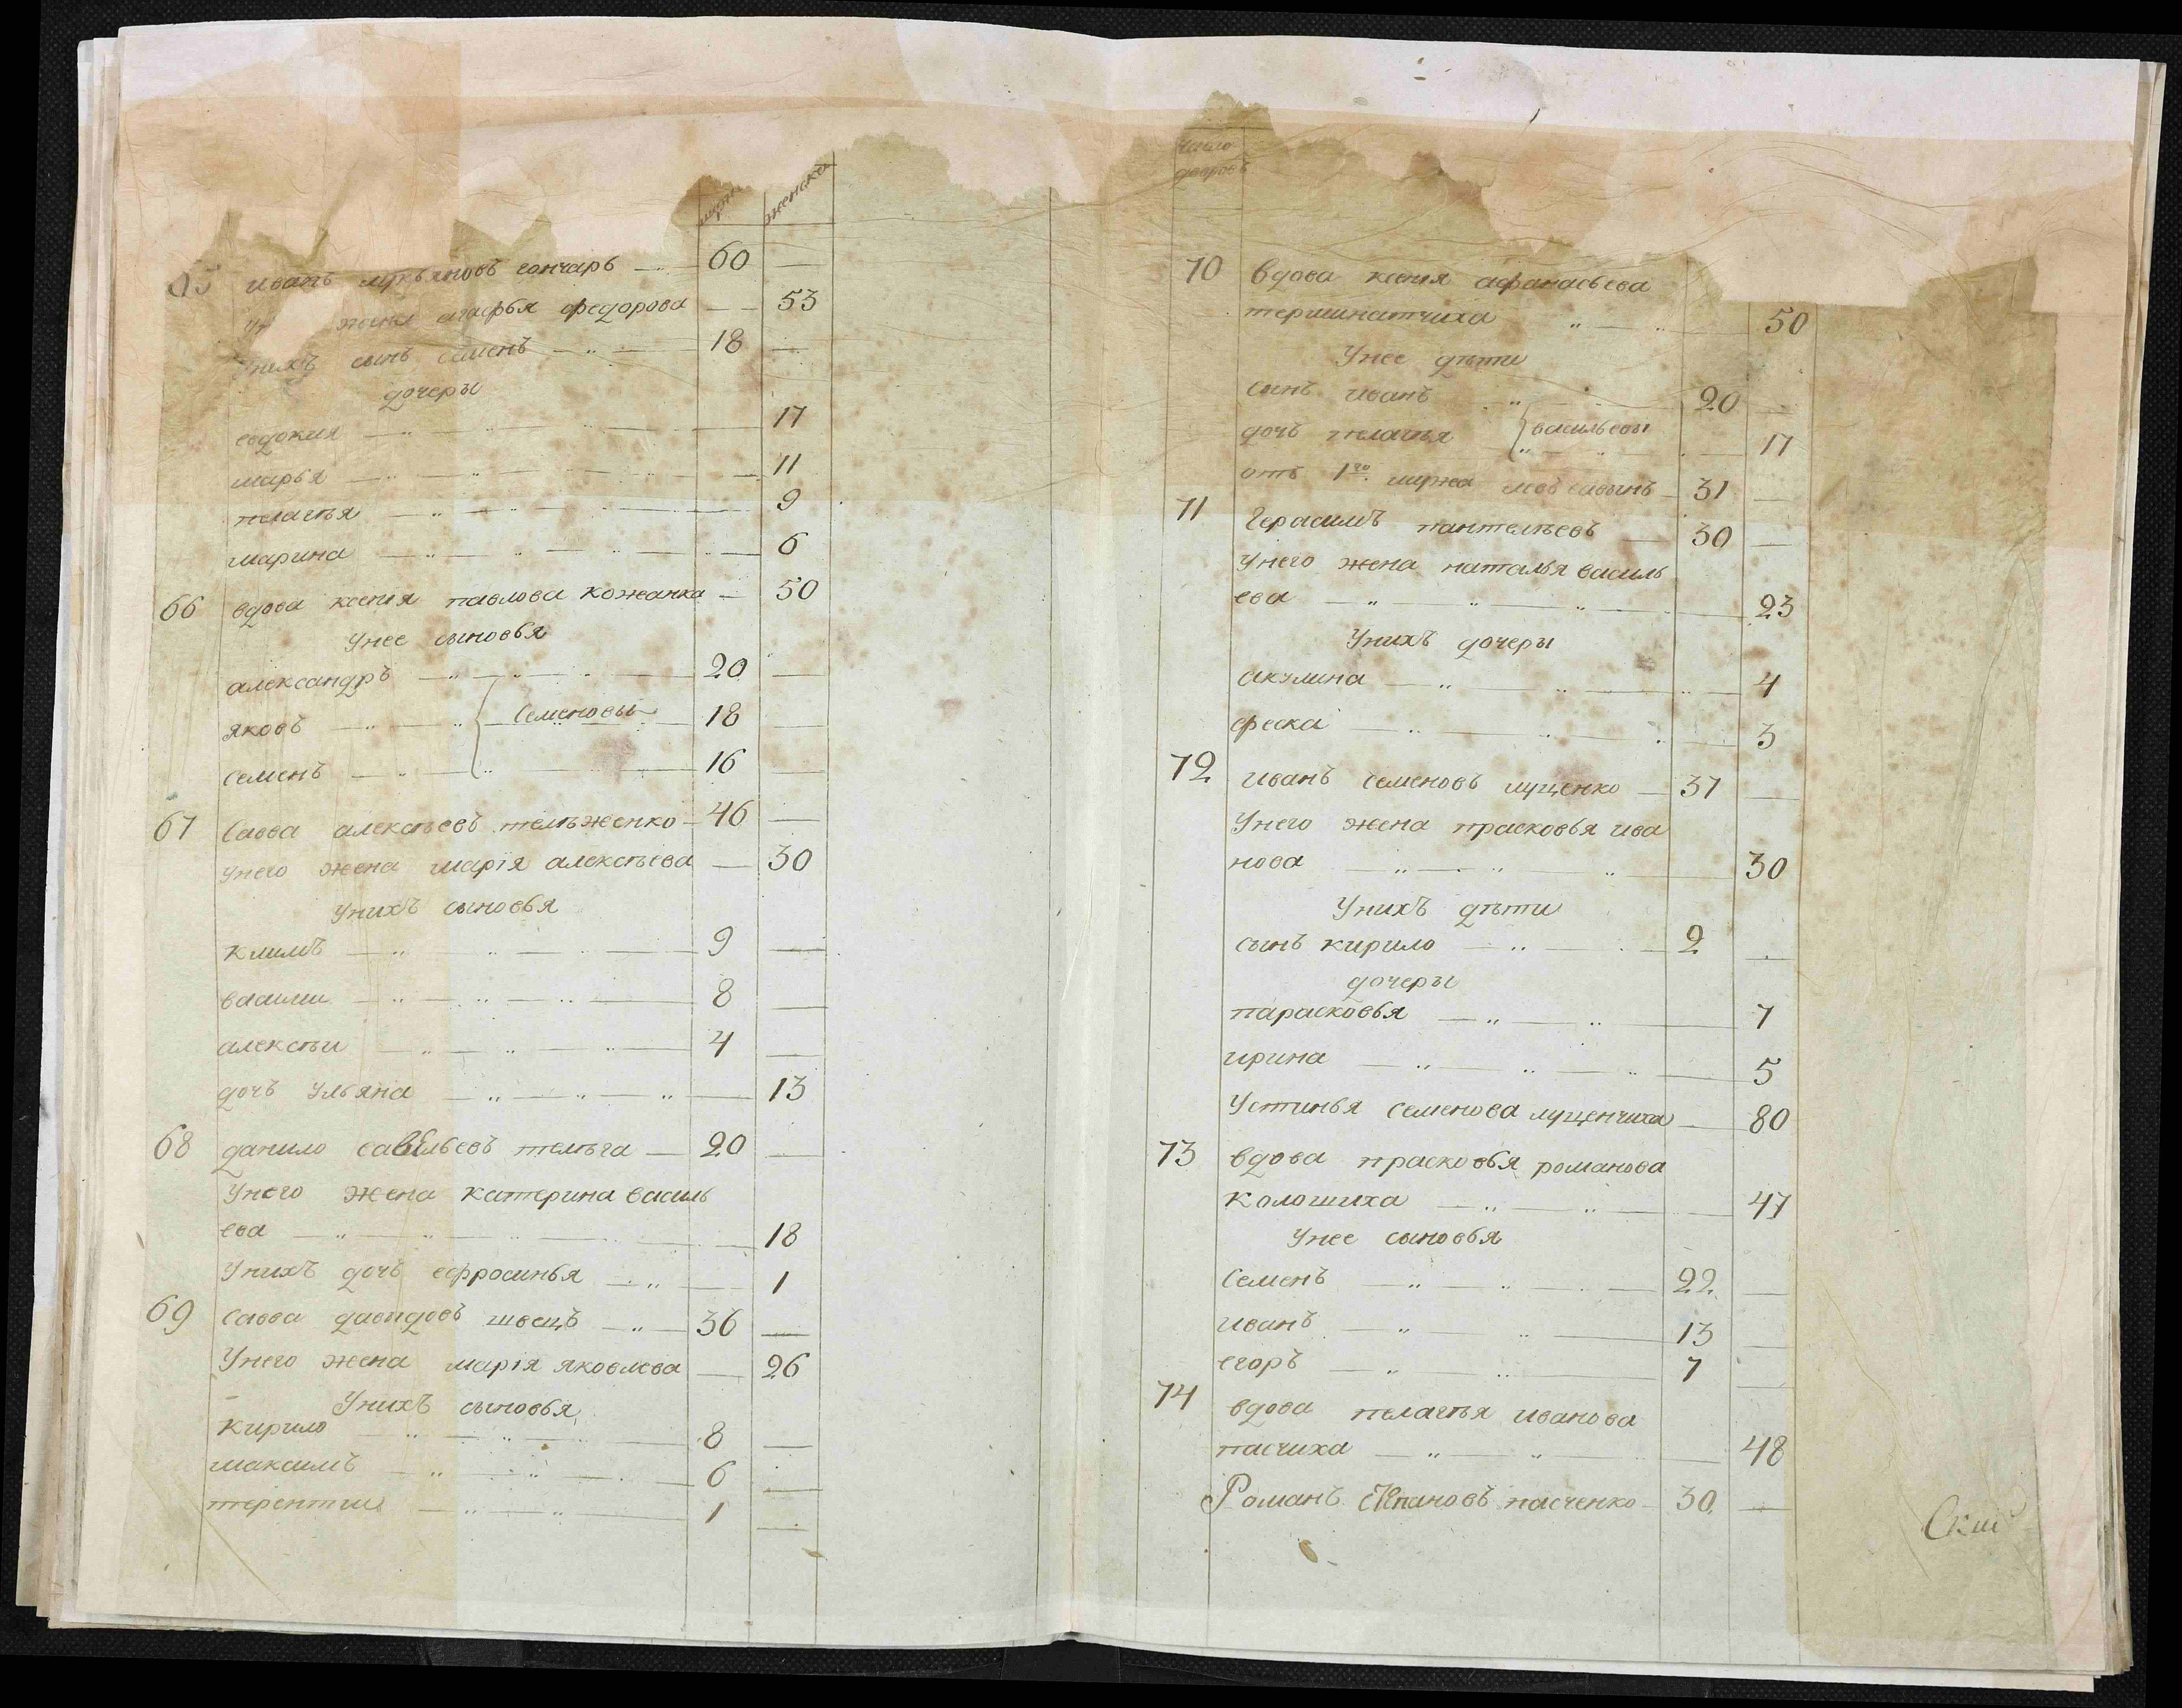 мужи женска
65 иванъ лукъяновъ гончаръ 60
жена агафья федорова 53
Унихъ сынъ семенъ 18
дочеры
евдокия 17
марья 11
пелагѣя 9
марина 6
66 вдова ксенія павлова кожанка 50
Унее сыновья
александръ 20
яковъ Семеновы 18
семенъ 16
67 Савва алексѣевъ телѣженко 46
Унего жена марія алексѣева 30
Унихъ сыновья
климъ 9
василии 8
алексѣи 4
дочъ Ульяна 13
68 данило савельевъ телѣга 20
Унего жена катерина василь
ева 18
Унихъ дочъ ефросинья 1
69 Савва давидовъ швецъ 36
Унего жена марія яковлева 26
Унихъ сыновья
кирило 8
максимъ 6
терентии 1
число
дворовъ
70 вдова ксенія афанасьева
50
Унее дѣти
сынъ иванъ 20
дочъ пелагѣя васильевы 17
отъ 1го мужа 31
71 Герасимъ пантелѣевъ 30
Унего жена наталья василь
ева 23
Унихъ дочеры
акулина 4
феска 3
72 иванъ семеновъ лущенко 37
Унего жена прасковья ива
нова 30
Унихъ дѣти
сынъ кирило 2
дочеры
парасковья 7
ирина 5
Устинья семенова лущенчиха 80
73 вдова прасковья романова
колошиха 47
Унее сыновья
Семенъ 22
иванъ 13
егоръ 7
74 вдова пелагѣя иванова
пасчиха 48
Романъ пасченко 30
Ски